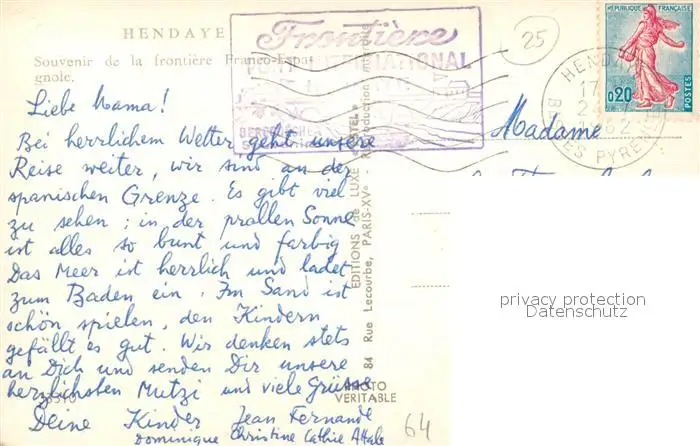 HENDAYE
Souvenir de la frontière Franco-Espa-
gnole.
Frontière
INTERNATIONAL
25
REPUBLIQUE FRANÇAISE
0,20
POSTES
HENDAYE
17
1962
PYRENEES
Liebe Mama!
Bei herrlichem Wetter geht unsere
Reise weiter, wir sind an der
spanischen Grenze. Es gibt viel
zu sehen; in der prallen Sonne
ist alles so bunt und farbig
Das Meer ist herrlich und ladet
zum Baden ein. Im Sand ist
schön spielen, den Kindern
gefällt es gut. Wir denken stets
an Dich und senden Dir unsere
herzlichsten Mutzi und viele Grüsse
Deine Kinder Jean Fernande
Dominique Christine Cathie
EDITIONS de LUXE
84 Rue Lecourbe, PARIS-XVe - Reproduction
PHOTO
VERITABLE
Madame
privacy protection
Datenschutz
64